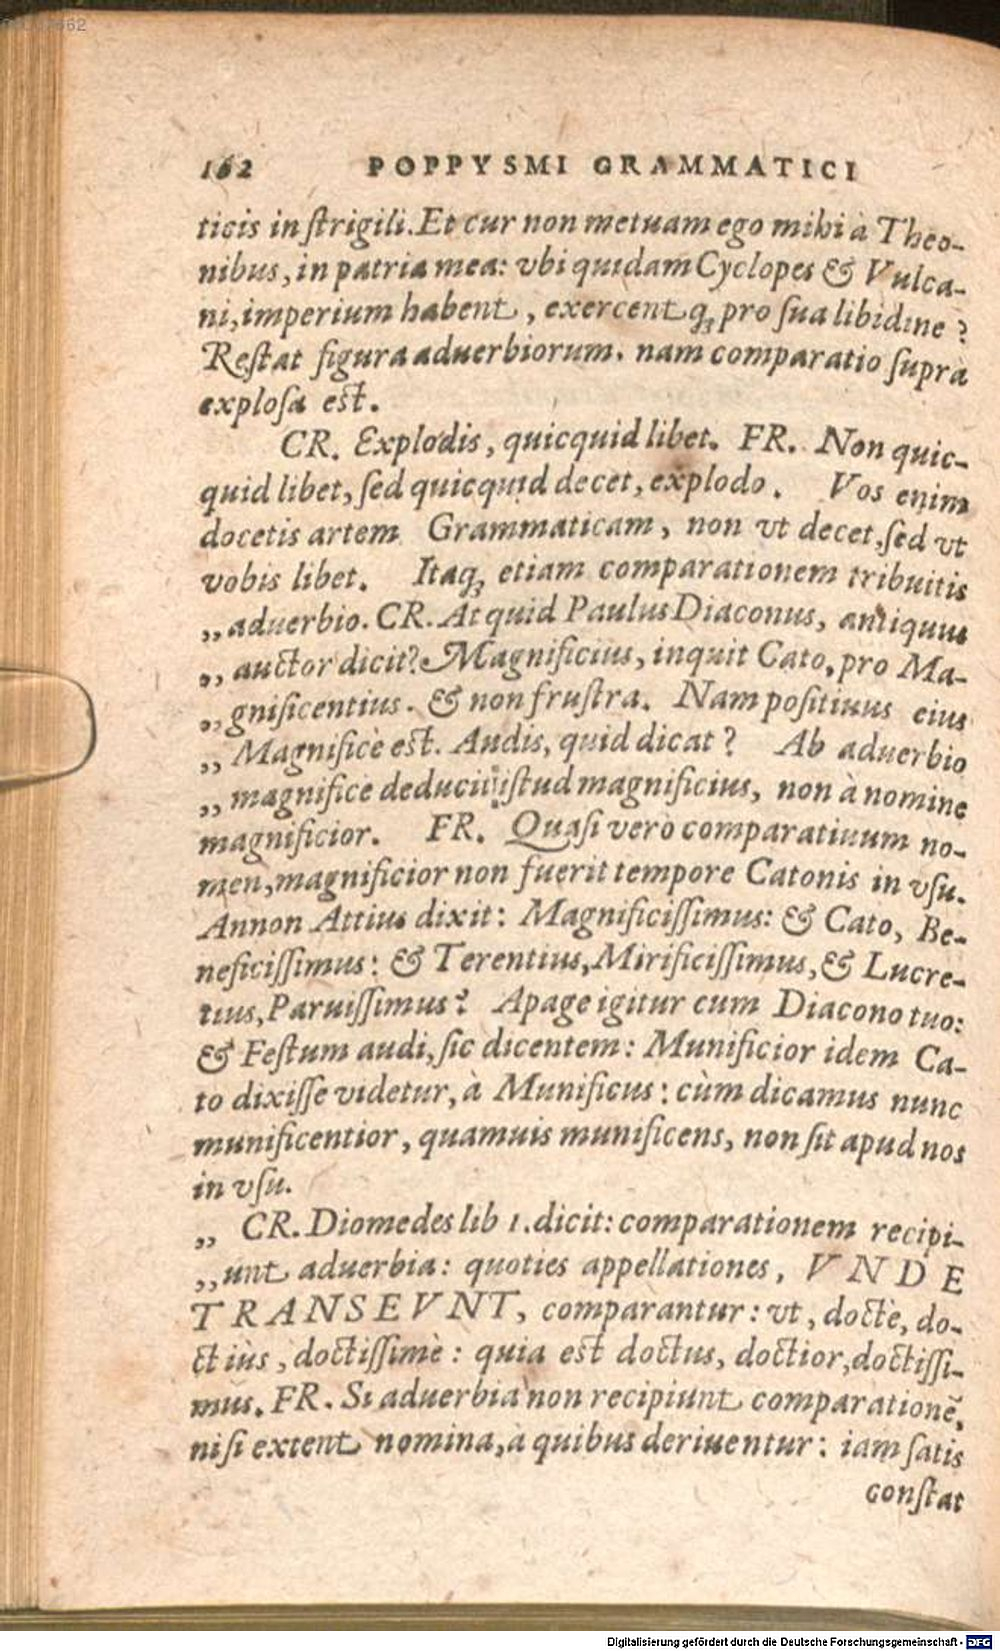 162 POPPYSMI GRAMMATICI
ticis in ſtrigili. Et cur non metuam ego mihi à Theo-
nibus, in patria mea: vbi quidam Cyclopes & Vulca-
ni, imperium habent, exercentq́; pro ſua libidine?
Reſtat figura aduerbiorum. nam comparatio ſuprà
exploſa est.
CR. Explodis, quicquid libet. FR. Non quic-
quid libet, ſed quicquid decet, explodo. Vos enim
docetis artem Grammaticam, non vt decet, ſed vt
vobis libet. Itaq; etiam comparationem tribuitis
„ aduerbio. CR. At quid Paulus Diaconus, antiquus
„ auctor dicit? Magnificius, inquit Cato, pro Ma-
„ gnificentius. & non fruſtra. Nam poſitiuus eius
„ Magnificè est. Audis, quid dicat? Ab aduerbio
„ magnifice deducit iſtud magnificius, non à nomine
magnificior. FR. Quaſi verò comparatiuum no-
men, magnificior non fuerit tempore Catonis in vſu.
Annon Attius dixit: Magnificiſſimus: & Cato, Be-
neficiſſimus: & Terentius, Mirificiſſimus, & Lucre-
tius, Paruiſſimus? Apage igitur cum Diacono tuo:
& Feſtum audi, ſic dicentem: Munificior idem Ca-
to dixiſſe videtur, à Munificus: cùm dicamus nunc
munificentior, quamuis munificens, non ſit apud nos
in vſu.
„ CR. Diomedes lib 1. dicit: comparationem recipi-
„ unt aduerbia: quoties appellationes, VNDE
TRANSEVNT, comparantur: vt, doctè, do-
ctiùs, doctiſſimè: quia est doctus, doctior, doctiſſi-
mus. FR. Si aduerbia non recipiunt comparationẽ,
niſi extent nomina, à quibus deriuentur: iam ſatis
conſtat
Digitalisierung gefördert durch die Deutsche Forschungsgemeinschaft - DFG